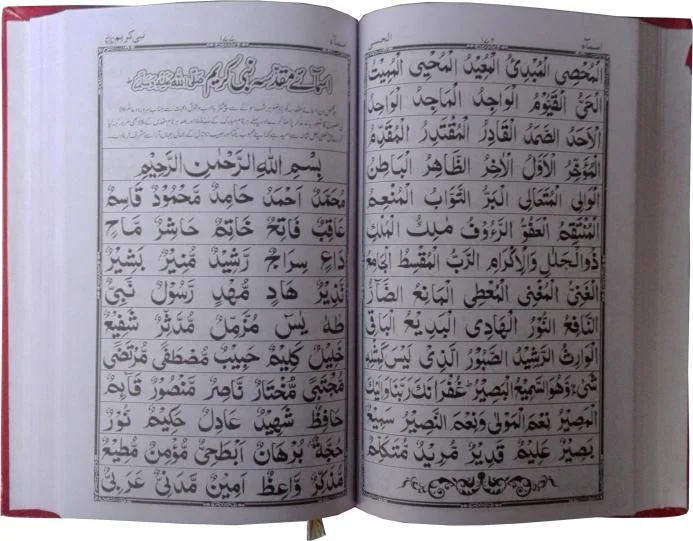 اسماء ١٧٦ الحسنى
الْمُحْصِى الْمُبْدِئُ الْمُعِيْدُ الْمُحْيِى الْمُمِيْتُ
الْحَىُّ الْقَيُّوْمُ الْوَاجِدُ الْمَاجِدُ الْوَاحِدُ
الْاَحَدُ الصَّمَدُ الْقَادِرُ الْمُقْتَدِرُ الْمُقَدِّمُ
الْمُؤَخِّرُ الْاَوَّلُ الْاٰخِرُ الظَّاهِرُ الْبَاطِنُ
الْوَالِى الْمُتَعَالِى الْبَرُّ التَّوَّابُ الْمُنْعِمُ
الْمُنْتَقِمُ الْعَفُوُّ الرَّءُوْفُ مٰلِكُ الْمُلْكِ
ذُوالْجَلٰلِ وَالْاِكْرَامِ الرَّبُّ الْمُقْسِطُ الْجَامِعُ
الْغَنِىُّ الْمُغْنِى الْمُعْطِى الْمَانِعُ الضَّآرُّ
النَّافِعُ النُّوْرُ الْهَادِى الْبَدِيْعُ الْبَاقِى
الْوَارِثُ الرَّشِيْدُ الصَّبُوْرُ الَّذِىْ لَيْسَ كَمِثْلِهٖ
شَىْءٌ وَهُوَ السَّمِيْعُ الْبَصِيْرُ غُفْرَانَكَ رَبَّنَا وَاِلَيْكَ
الْمَصِيْرُ نِعْمَ الْمَوْلٰى وَنِعْمَ النَّصِيْرُ سَمِيْعٌ
بَصِيْرٌ عَلِيْمٌ قَدِيْرٌ مُّرِيْدٌ مُّتَكَلِّمٌ
اسماء ١٧٧ نبی کریم
اسمائے مقدسہ نبی کریم ﷺ
بِسْمِ اللهِ الرَّحْمٰنِ الرَّحِيْمِ
مُحَمَّدٌ اَحْمَدُ حَامِدٌ مَّحْمُوْدٌ قَاسِمٌ
عَاقِبٌ فَاتِحٌ خَاتِمٌ حَاشِرٌ مَّاحٍ
دَاعٍ سِرَاجٌ رَّشِيْدٌ مُّنِيْرٌ بَشِيْرٌ
نَذِيْرٌ هَادٍ مُّهْدٍ رَّسُوْلٌ نَبِىٌّ
طٰهٰ يٰسٓ مُزَّمِّلٌ مُّدَّثِّرٌ شَفِيْعٌ
خَلِيْلٌ كَلِيْمٌ حَبِيْبٌ مُّصْطَفٰى مُرْتَضٰى
مُجْتَبٰى مُخْتَارٌ نَّاصِرٌ مَّنْصُوْرٌ قَآئِمٌ
حَافِظٌ شَهِيْدٌ عَادِلٌ حَكِيْمٌ نُوْرٌ
حُجَّةٌ بُرْهَانٌ اَبْطَحِىٌّ مُّؤْمِنٌ مُّطِيْعٌ
مُذَكِّرٌ وَّاعِظٌ اَمِيْنٌ مَّدَنِىٌّ عَرَبِىٌّ